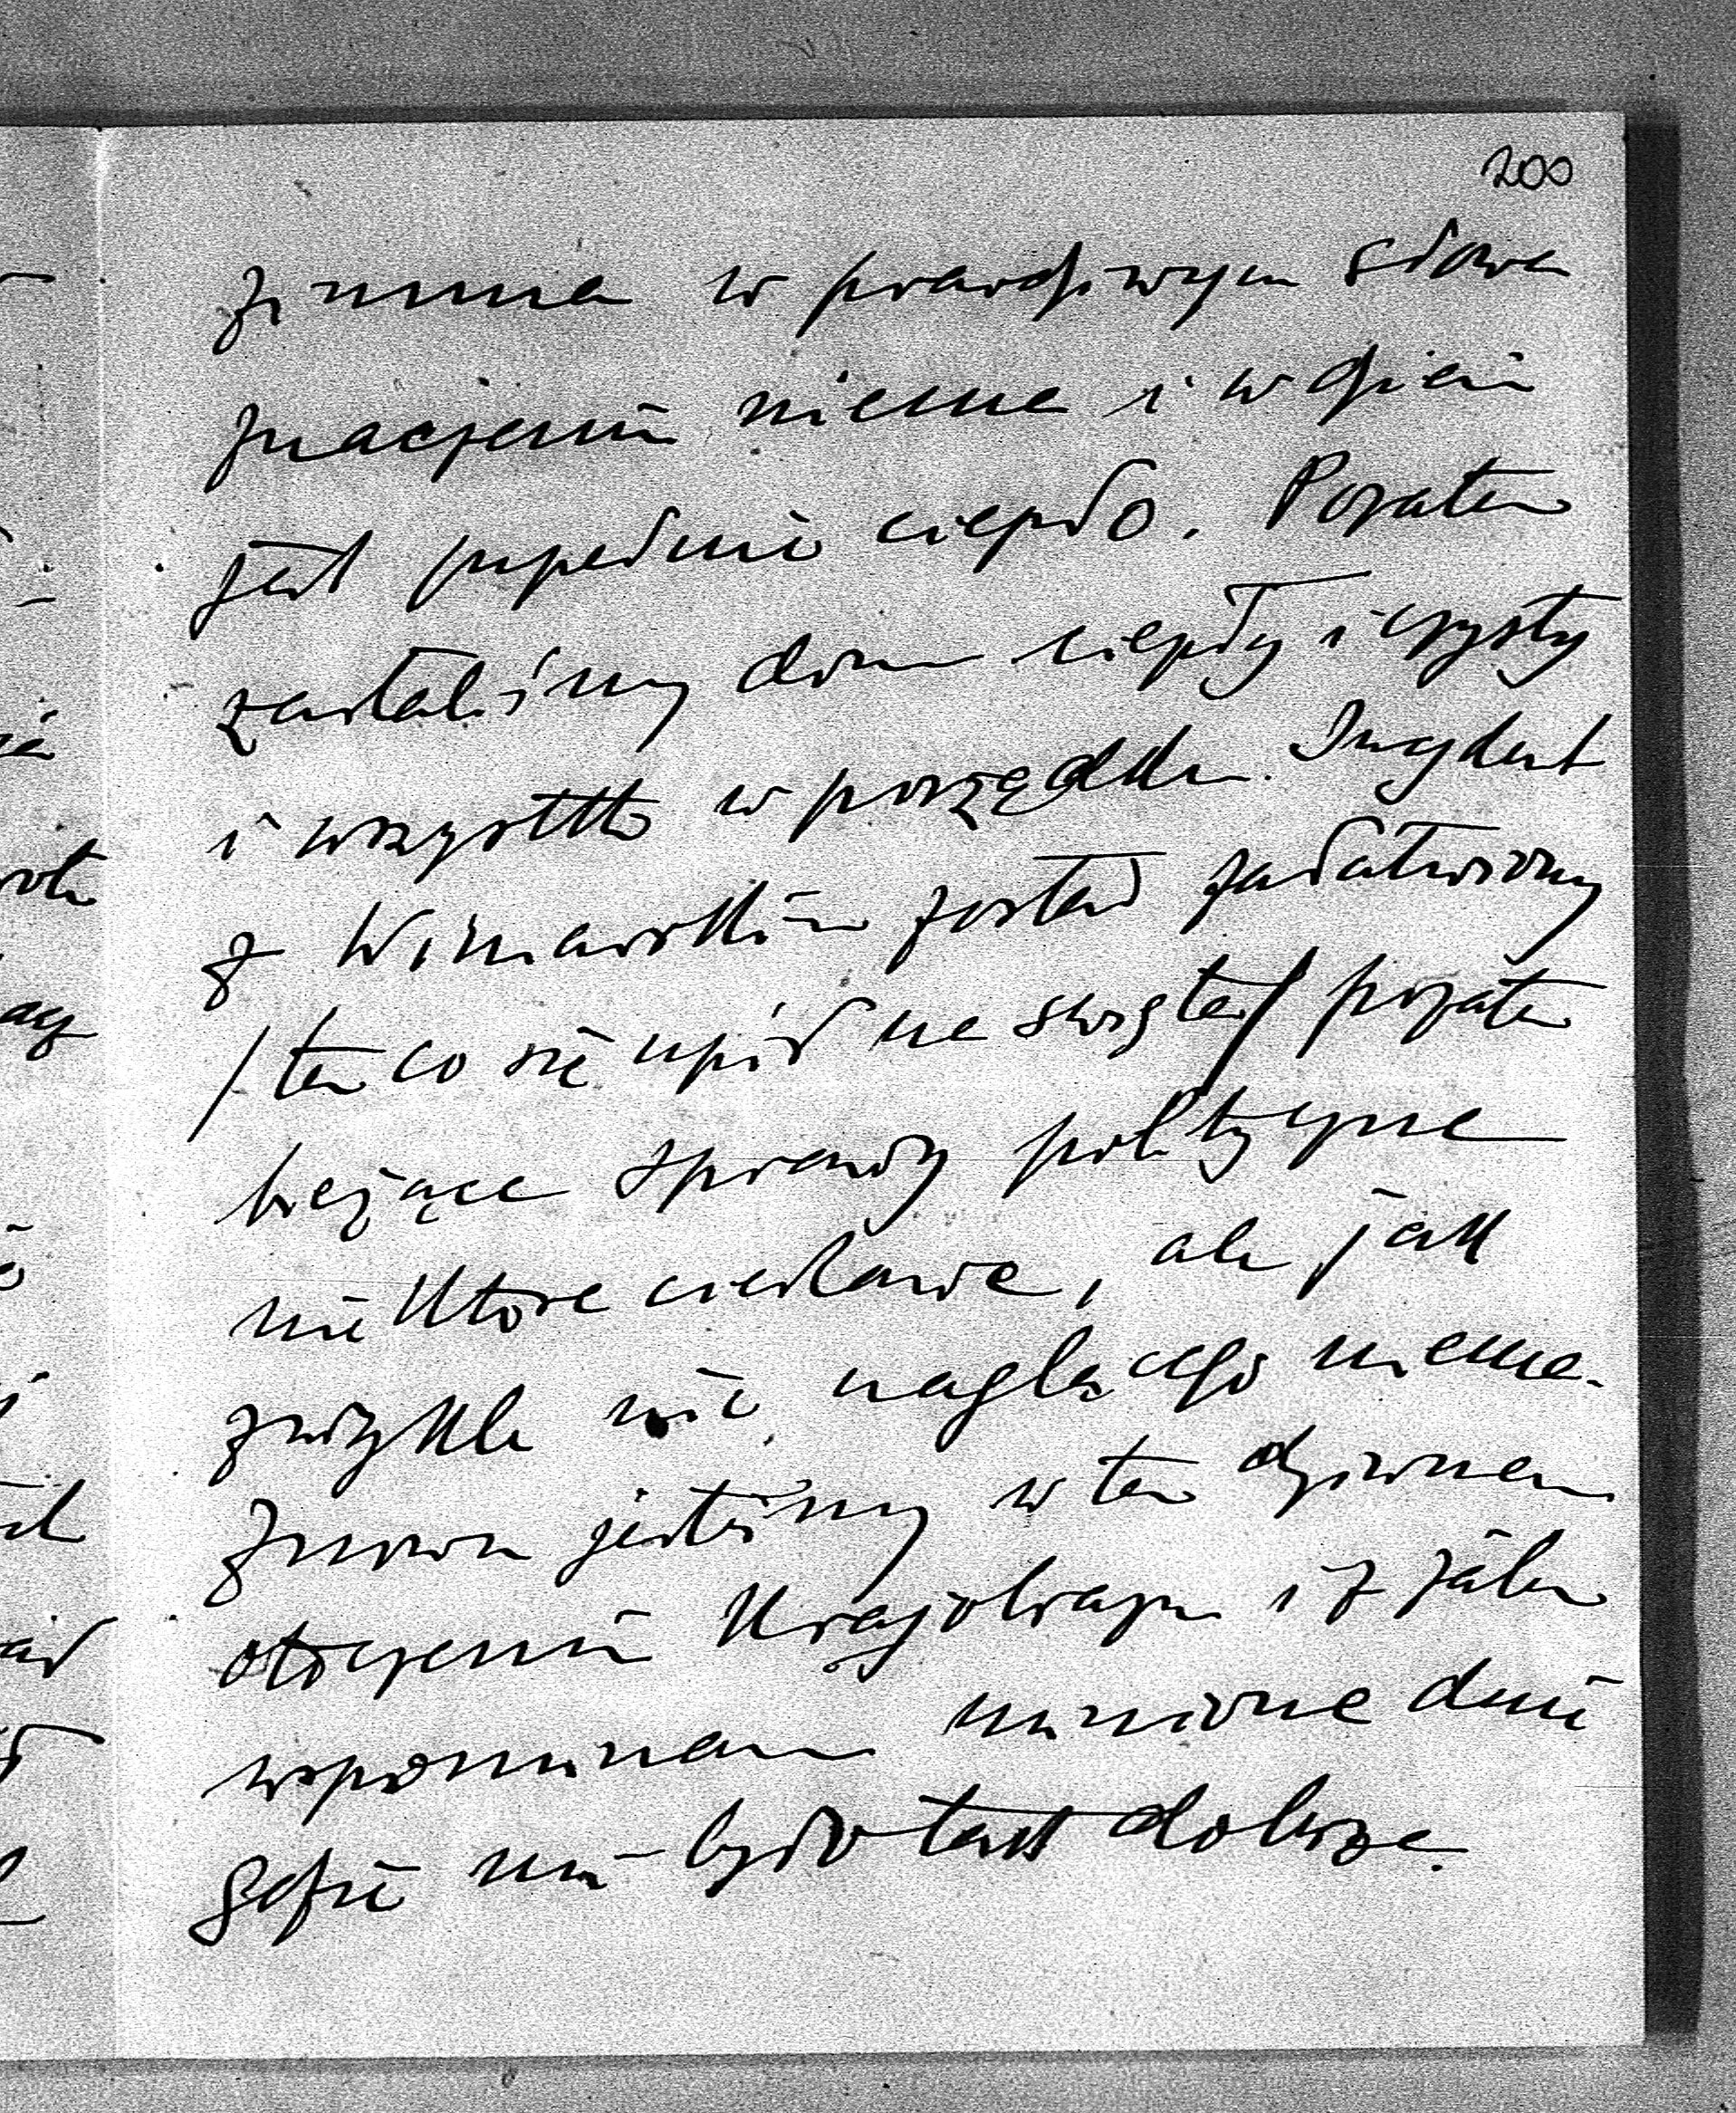 200
zimna w prawdziwym słowa
znaczeniu niema i w dzień
jest zupełnie ciepło. Pozatem
zastaliśmy dom ciepły i czysty
i wszystko w porządku. Incydent
z Winiarskim został załatwiony
/ten co się upił na święta/ pozatem
bieżące sprawy polityczne
niektóre ciekawe, ale jak
zwykle nic naglącego niema.
Znowu jesteśmy w tem dziwnem
otoczeniu krajobrazu i z żalem
wspominam minione dni
gdzie mi było tak dobrze.